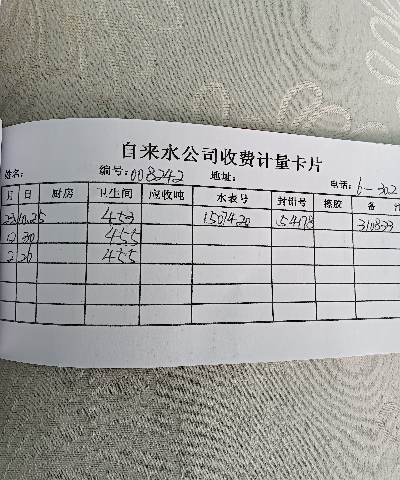 自来水公司收费计量卡片
姓名： 编号：008242 地址： 电话：6-302
月 日 厨房 卫生间 应收吨 水表号 封铅号 橡胶 备
23 10.25 453 1507420 54178 310823
2 30 455
2 26 455